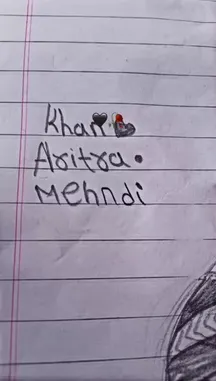 Khan🖤💄
Aritra•
Mehndi